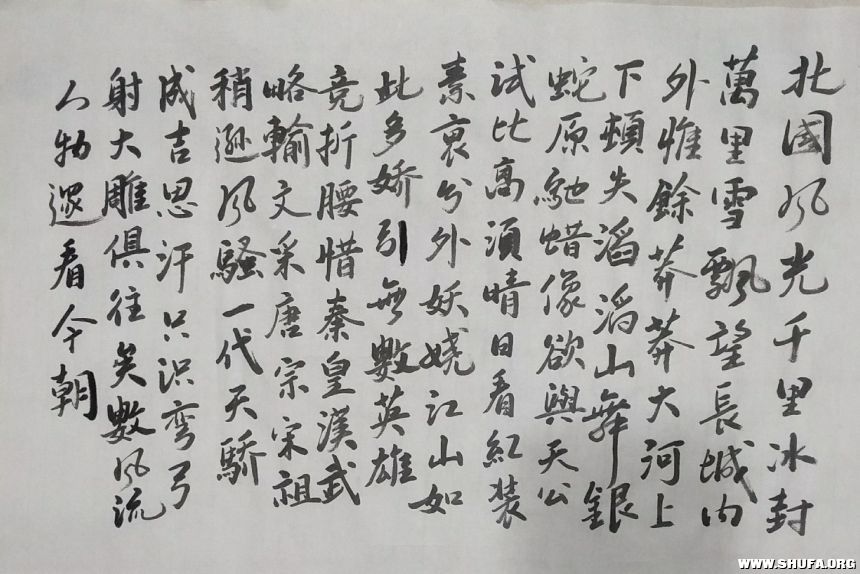 北國风光千里冰封
萬里雪飘望長城内
外惟餘莽莽大河上
下頓失滔滔山舞銀
蛇原馳蜡像欲與天公
試比高須晴日看紅装
素裹分外妖娆江山如
此多娇引無數英雄
竞折腰惜秦皇漢武
略輸文采唐宗宋祖
稍遜风騷一代天驕
成吉思汗只识弯弓
射大雕俱往矣數风流
人物還看今朝
WWW.SHUFA.ORG